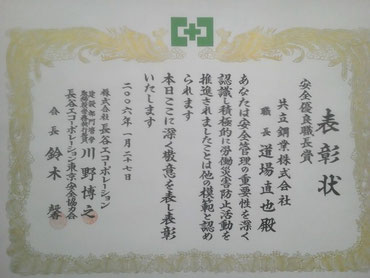 表彰状
安全優良職長賞
共立鋼業株式会社
職長 道場直也殿
あなたは安全管理の重要性を深く
認識し積極的に労働災害防止活動を
推進されましたことは他の模範と認め
られます
本日ここに深く敬意を表し表彰
いたします
二〇〇六年一月二十七日
株式会社長谷工コーポレーション
川野博之
長谷工コーポレーション東京安全協力会
会長 鈴木